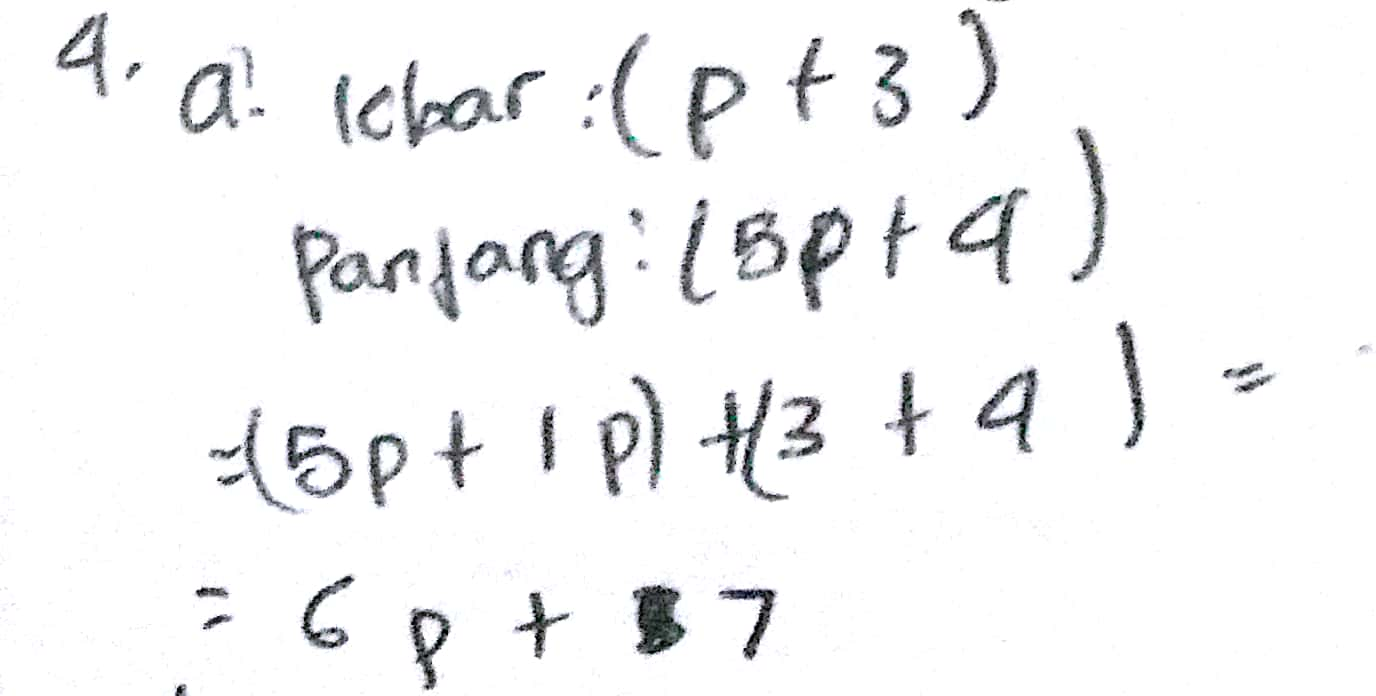 4. a. lebar : (p + 3)
Panjang : (5p + 4)
= (5p + 1p) + (3 + 4) =
= 6p + 7